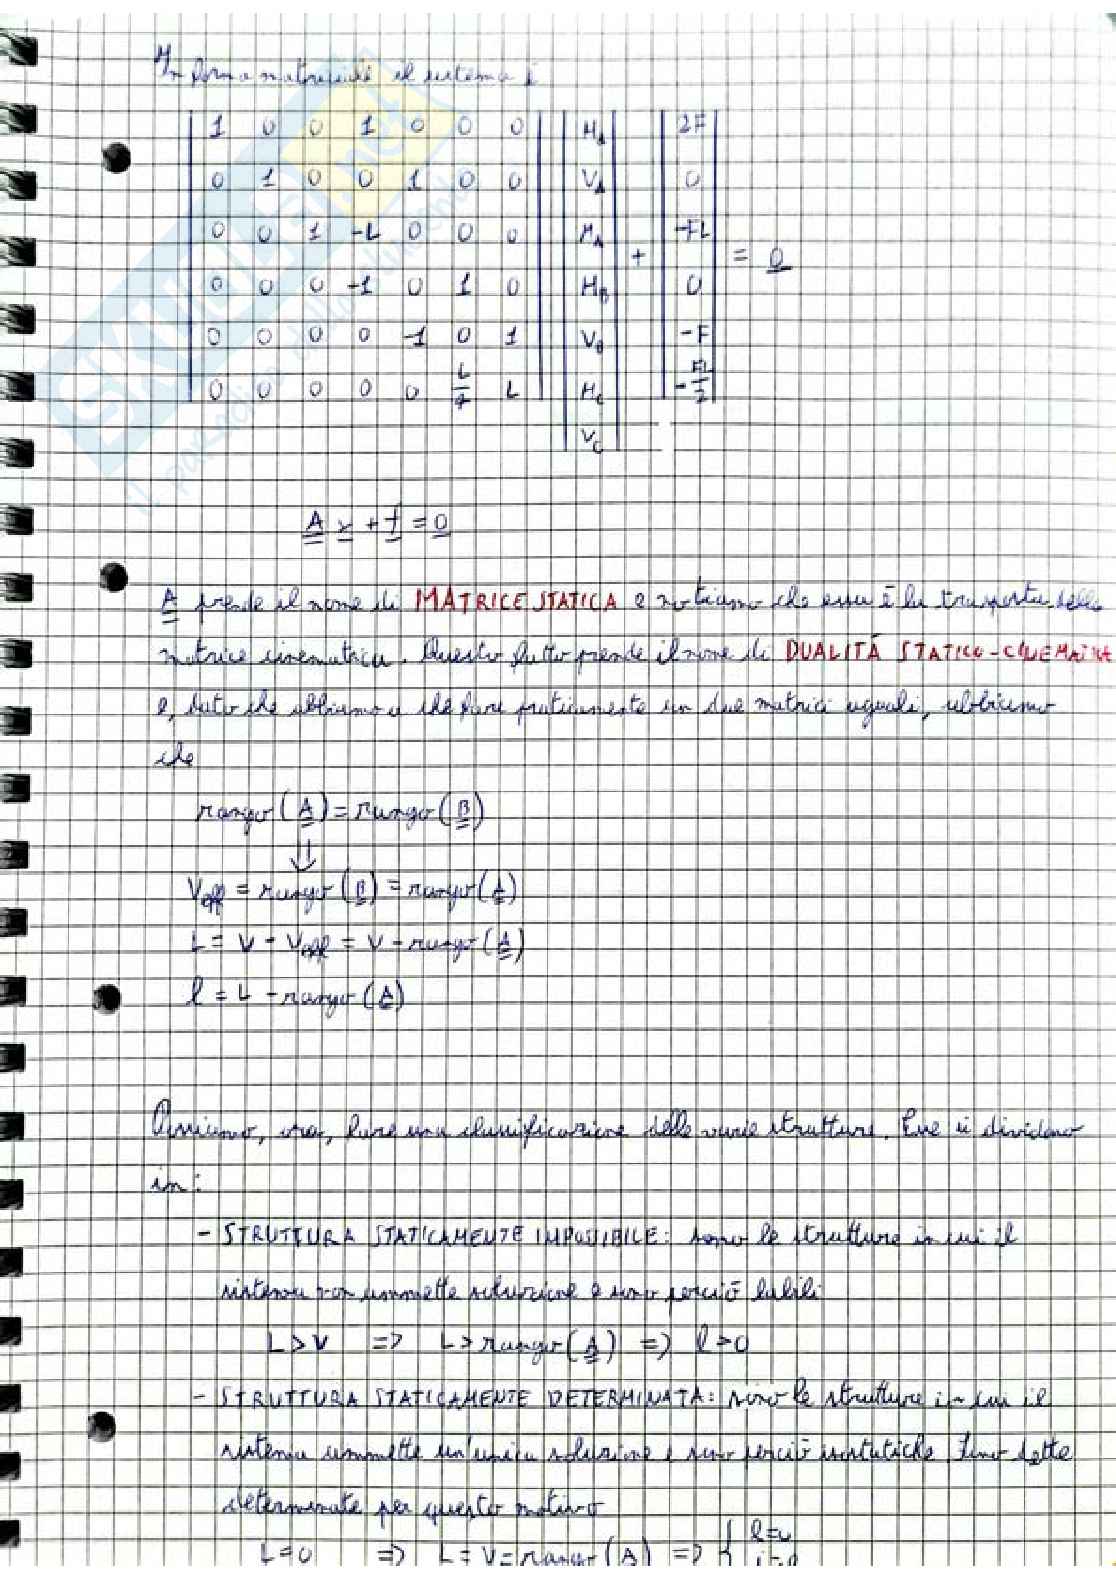 In forma matriciale il sistema è
1 0 0 1 0 0 0 H_A 2F
0 1 0 0 1 0 0 V_A 0
0 0 1 -L 0 0 0 M_A -FL
+ = 0
0 0 0 -1 0 1 0 H_B 0
0 0 0 0 -1 0 1 V_B -F
0 0 0 0 0 L/4 L H_C -FL/2
V_C
A x + f = 0
A prende il nome di MATRICE STATICA e notiamo che essa è la trasposta della
matrice cinematica. Questo fatto prende il nome di DUALITÀ STATICO-CINEMATICA
e, dato che abbiamo a che fare praticamente con due matrici uguali, abbiamo
che
rango (A) = rango (B)
⇓
V_eff = rango (B) = rango (A)
L = V - V_eff = V - rango (A)
l = L - rango (A)
Possiamo, ora, fare una classificazione delle varie strutture. Esse si dividono
in:
- STRUTTURA STATICAMENTE IMPOSSIBILE: sono le strutture in cui il
sistema non ammette soluzione e sono perciò labili
L > V => L > rango (A) => l > 0
- STRUTTURA STATICAMENTE DETERMINATA: sono le strutture in cui il
sistema ammette un'unica soluzione e sono perciò isostatiche. Sono dette
determinate per questo motivo
L = 0 => L = V = rango (A) => { l = 0
i = 0
SKUOLA.net
il paradiso dello studente